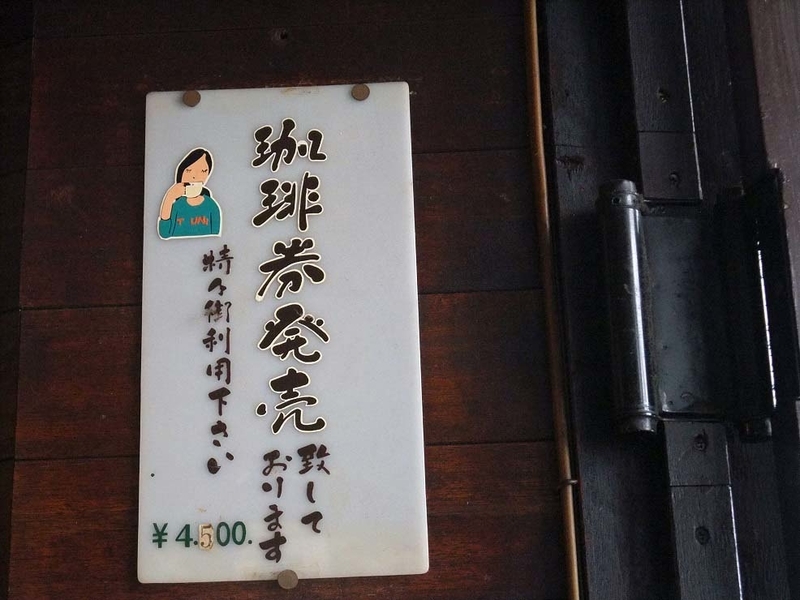 珈琲券発売
致して
おります
特々御利用下さい
¥4.500.